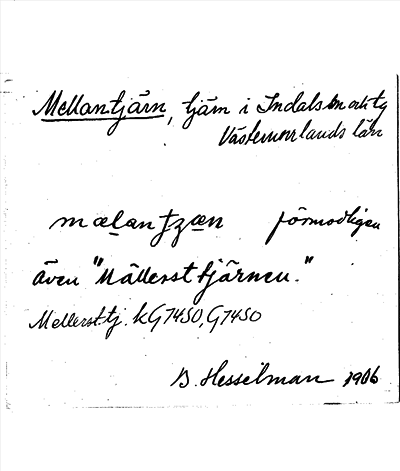 Mellantjärn, tjärn i Indals sn och tg
Västernorrlands län
mælantzæn förmodligen
även "Mällersttjärnen."
Mellerst.tj. kG7450, G7450
B. Hesselman 1906